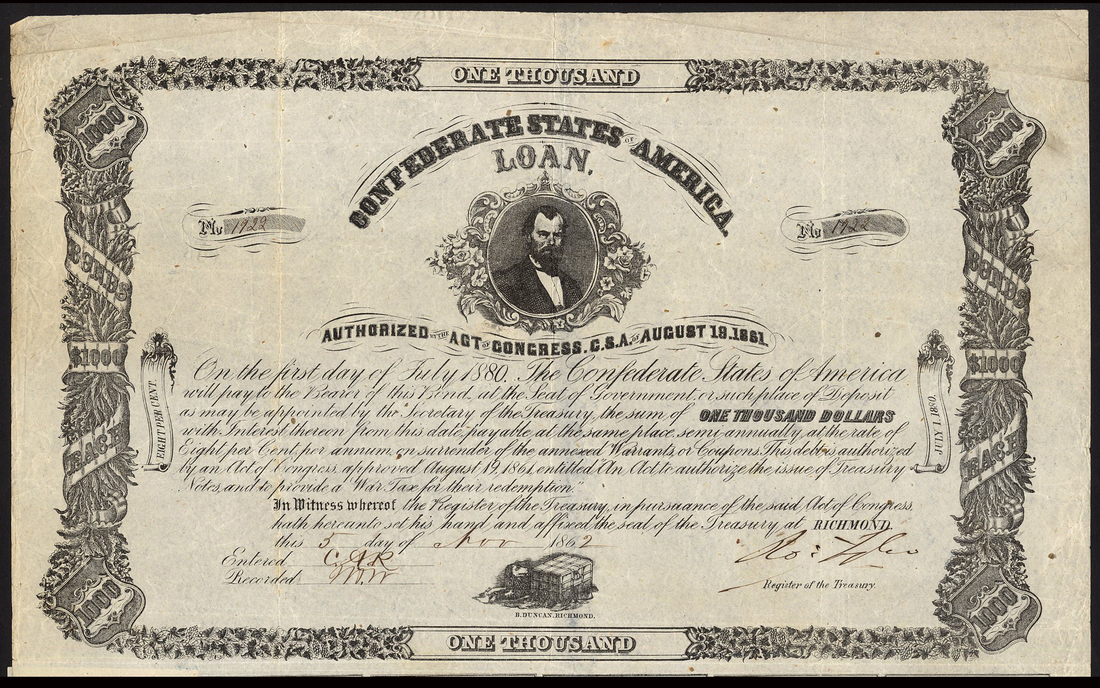 ONE THOUSAND
1000
1000
CONFEDERATE STATES OF AMERICA.
LOAN,
No 1922
No 1922
BONDS
BONDS
AUTHORIZED BY THE ACT OF CONGRESS. C.S.A. OF AUGUST 19.1861.
$1000
$1000
EIGHT PER CENT.
JULY 1. 1880.
On the first day of July 1880. The Confederate States of America
will pay to the Bearer of this Bond, at the Seat of Government, or such place of Deposit
as may be appointed by the Secretary of the Treasury, the sum of ONE THOUSAND DOLLARS
with Interest thereon from this date, payable at the same place, semi-annually, at the rate of
Eight per Cent, per annum on surrender of the annexed Warrants or Coupons. This debt is authorized
by an Act of Congress, approved August 19, 1861, entitled An Act to authorize the issue of Treasury
Notes, and to provide a War Tax for their redemption."
EACH
EACH
In Witness whereof the Register of the Treasury, in pursuance of the said Act of Congress,
hath hereunto set his hand and affixed the seal of the Treasury at RICHMOND
this 5 day of Nov 1862
Entered C.A.R
Recorded W.W
Ro: Tyler
Register of the Treasury.
B. DUNCAN, RICHMOND.
1000
1000
ONE THOUSAND